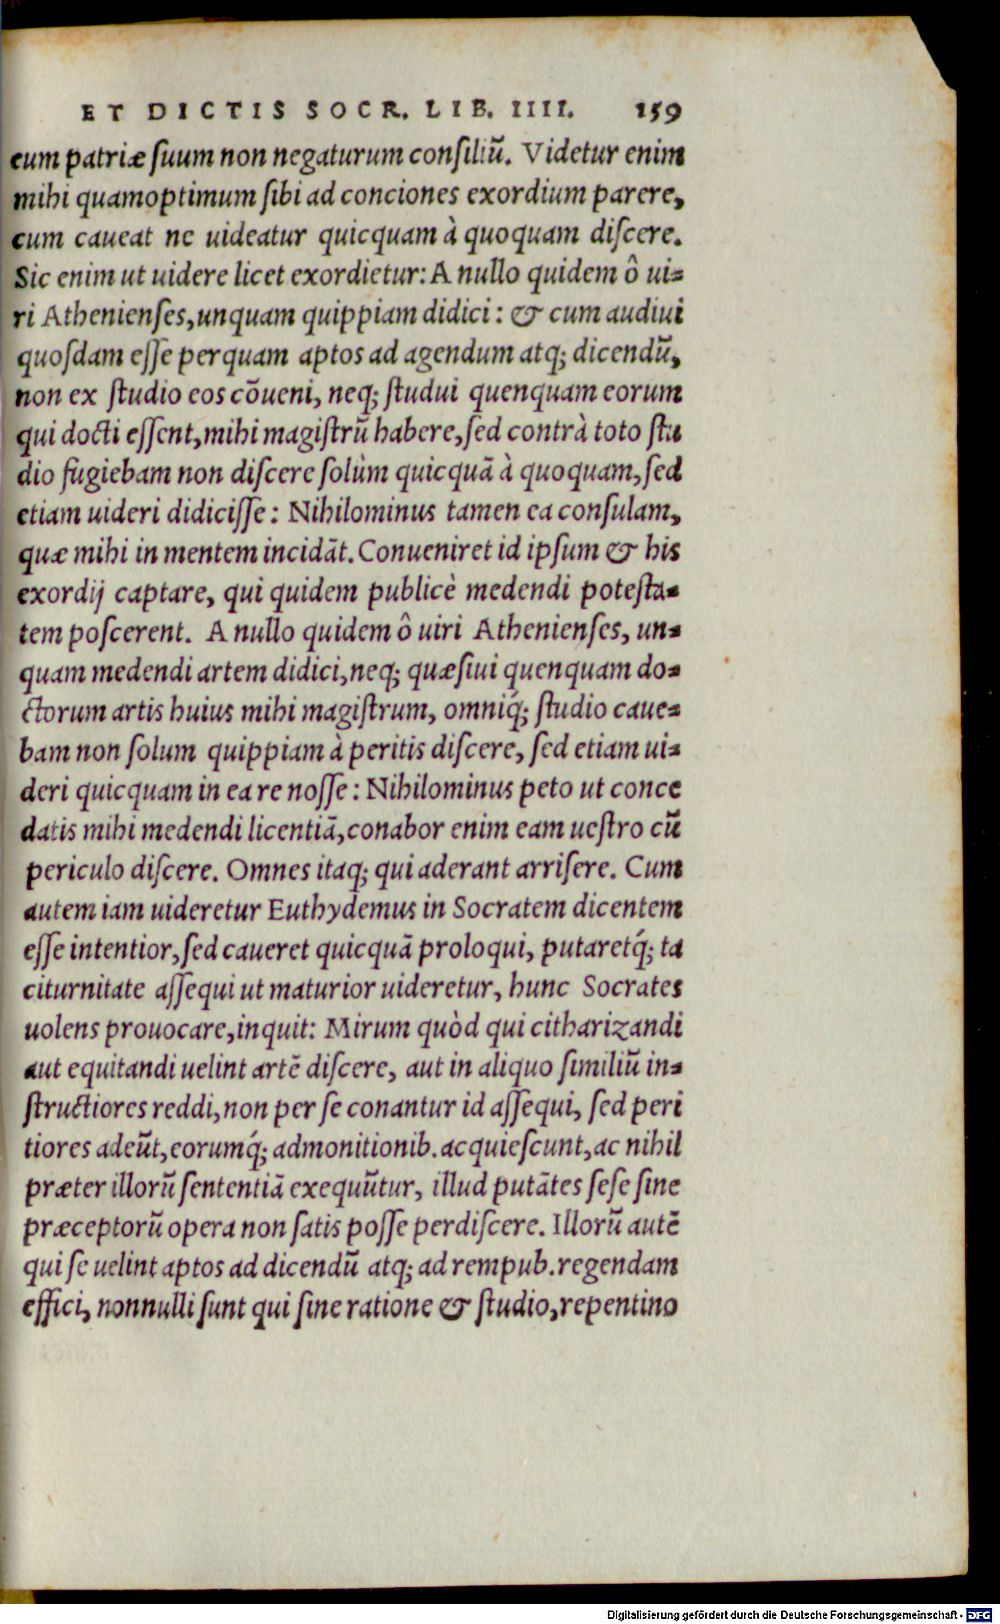 ET DICTIS SOCR. LIB. IIII. 159
eum patriæ suum non negaturum consiliū. Videtur enim
mihi quamoptimum sibi ad conciones exordium parere,
cum caueat ne uideatur quicquam à quoquam discere.
Sic enim ut uidere licet exordietur: A nullo quidem ô ui=
ri Athenienses, unquam quippiam didici: & cum audiui
quosdam esse perquam aptos ad agendum atq; dicendū,
non ex studio eos cōueni, neq; studui quenquam eorum
qui docti essent, mihi magistrū habere, sed contrà toto stu
dio fugiebam non discere solùm quicquā à quoquam, sed
etiam uideri didicisse: Nihilominus tamen ea consulam,
quæ mihi in mentem incidāt. Conueniret id ipsum & his
exordij captare, qui quidem publicè medendi potesta=
tem poscerent. A nullo quidem ô uiri Athenienses, un=
quam medendi artem didici, neq; quæsiui quenquam do=
ctorum artis huius mihi magistrum, omniq́; studio caue=
bam non solum quippiam à peritis discere, sed etiam ui=
deri quicquam in ea re nosse: Nihilominus peto ut conce
datis mihi medendi licentiā, conabor enim eam uestro cū
periculo discere. Omnes itaq; qui aderant arrisere. Cum
autem iam uideretur Euthydemus in Socratem dicentem
esse intentior, sed caueret quicquā proloqui, putaretq́; ta
citurnitate assequi ut maturior uideretur, hunc Socrates
uolens prouocare, inquit: Mirum quòd qui citharizandi
aut equitandi uelint artē discere, aut in aliquo similiū in=
structiores reddi, non per se conantur id assequi, sed peri
tiores adeūt, eorumq́; admonitionib. acquiescunt, ac nihil
præter illorū sententiā exequūtur, illud putātes sese sine
præceptorū opera non satis posse perdiscere. Illorū autē
qui se uelint aptos ad dicendū atq; ad rempub. regendam
effici, nonnulli sunt qui sine ratione & studio, repentino
Digitalisierung gefördert durch die Deutsche Forschungsgemeinschaft - DFG